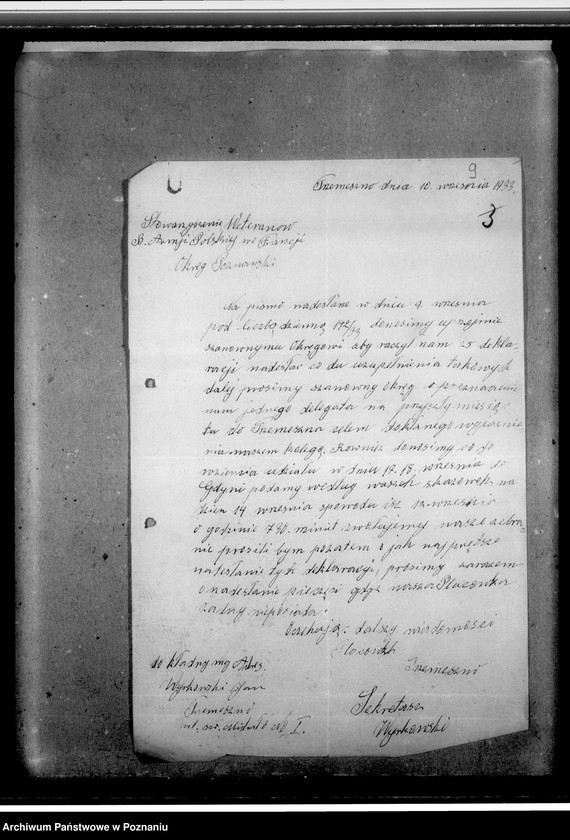 9
Trzemeszno dnia 10. września 1933.
3
Stowarzyszenie Weteranów
B. Armji Polskiej we Francji
Okręg Poznański
Na pismo nadesłane w dniu 9 września
pod liczbą dzienną 172/33 donosimy
szanownymu Okręgowi aby raczył nam 25 dekla-
racji nadesłać co do uzupełninia takowych
dalej prosimy szanowny Okręg o przeznaczenie
nam jednego delegata na przyszły miesią-
ca do Trzemeszna celem dokładnego wyjaśnie
nia naszem kolegą. Rownież donosimy co do
wzięcia udziału w dniu 17. 18. września do
Gdyni podamy według waszch skazówek na
dzien 14 września spowodu isz 12-września
o godzinie 7 30. minut zwołujemy nasze zebra-
nie prosili bym pozatem o jak najprędsze
nadesłanie tych deklaracji, prosimy zarazem
o nadesłanie pieczęci gdyż nasza Placówka
żadny nieposiada.
Oczekując dalszy wiadomosci
Placowka
Trzemeszno
do kładny mg Adres.
Wyrkowski Jan
Trzemeszno
ul. św. I.
Sekretarz
Wyrkowski
Archiwum Państwowe w Poznaniu